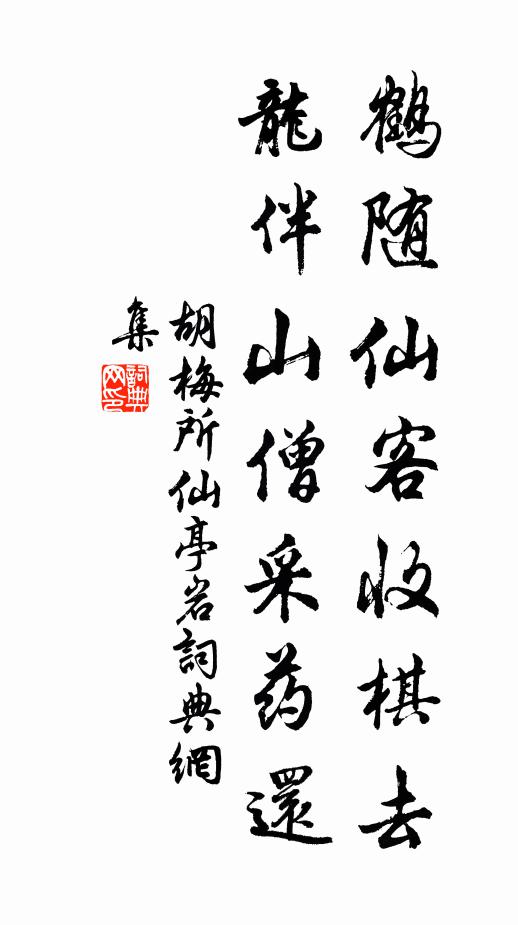 鶴随仙客收棋去
龍伴山僧采药還
胡梅所仙亭岩詞典網
集
詞典
网印